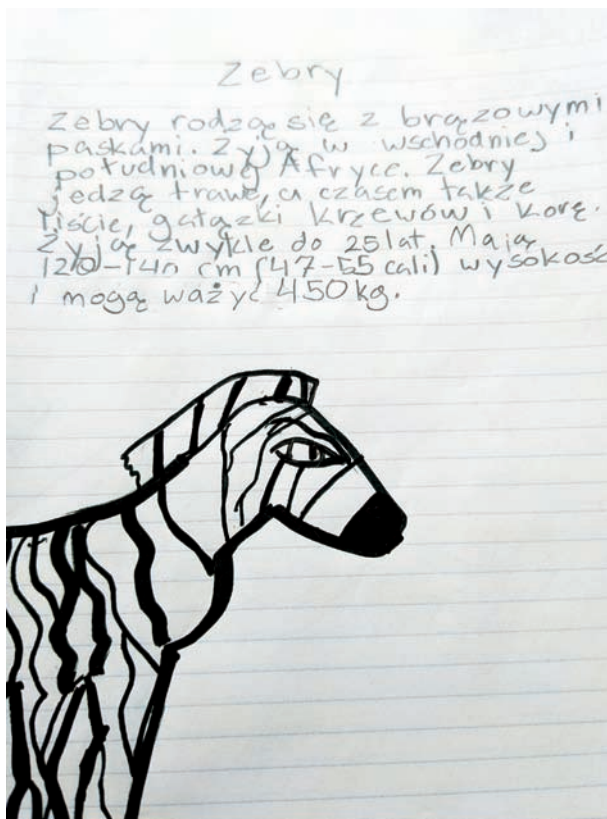 Zebry
Zebry rodzą się z brązowymi
paskami. Żyją w wschodniej i
południowej Afryce. Zebry
jedzą trawę, a czasem także
liście, gałązki krzewów i korę.
Żyją zwykle do 25 lat. Mają
120-140 cm (47-55 cali) wysokość
i mogą ważyć 450 kg.